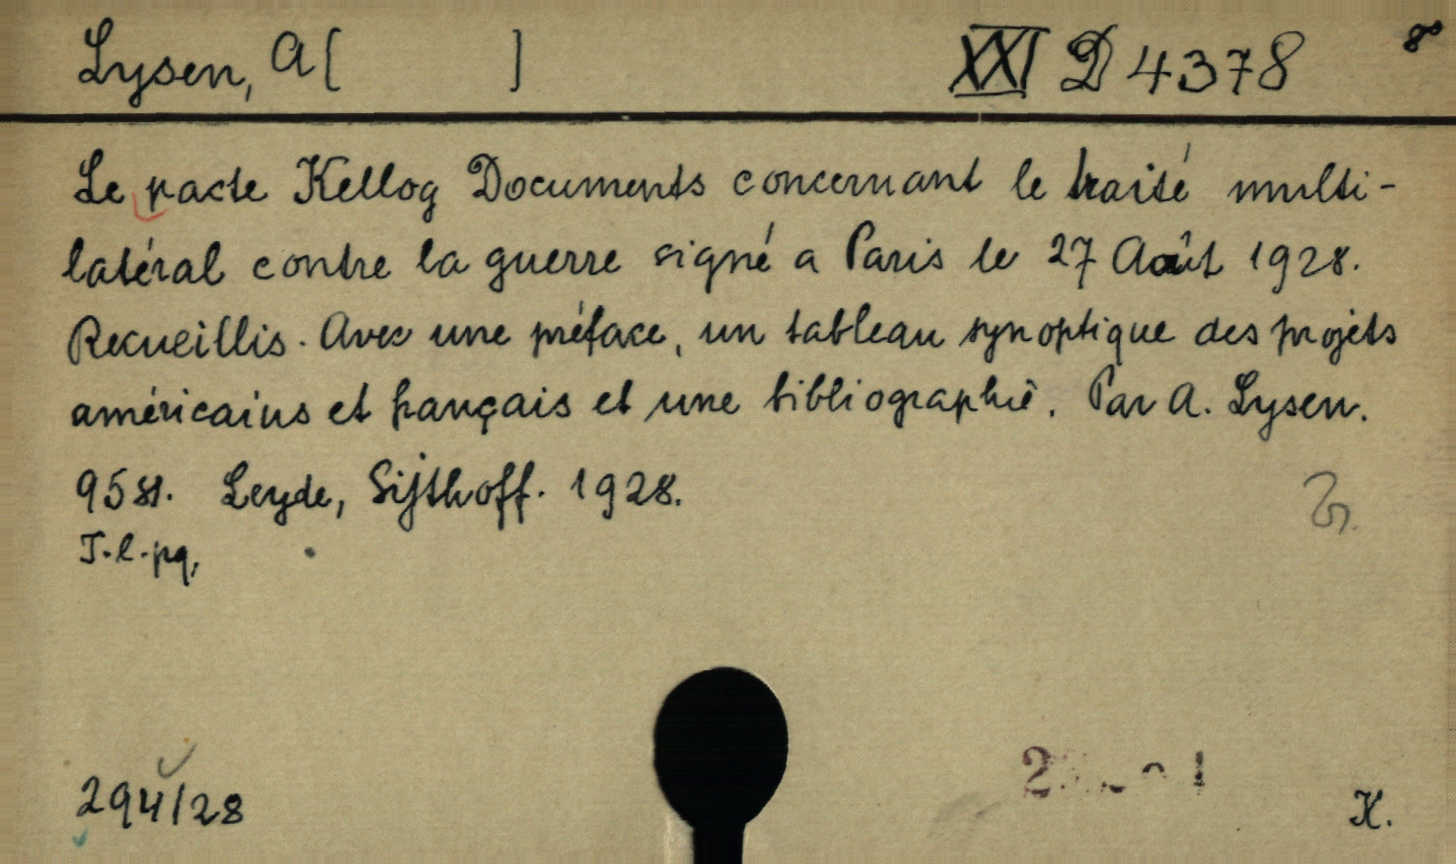 Lysen, A[ ] XXI D 4378 8°
Le pacte Kellog Documents concernant le traité multi-
latéral contre la guerre signé a Paris le 27 Août 1928.
Recueillis. Avec une préface, un tableau synoptique des projets
américains et français et une bibliographie. Par A. Lysen.
95 st. Leyde, Sijthoff. 1928.
T. l. pq,
294/28
K.